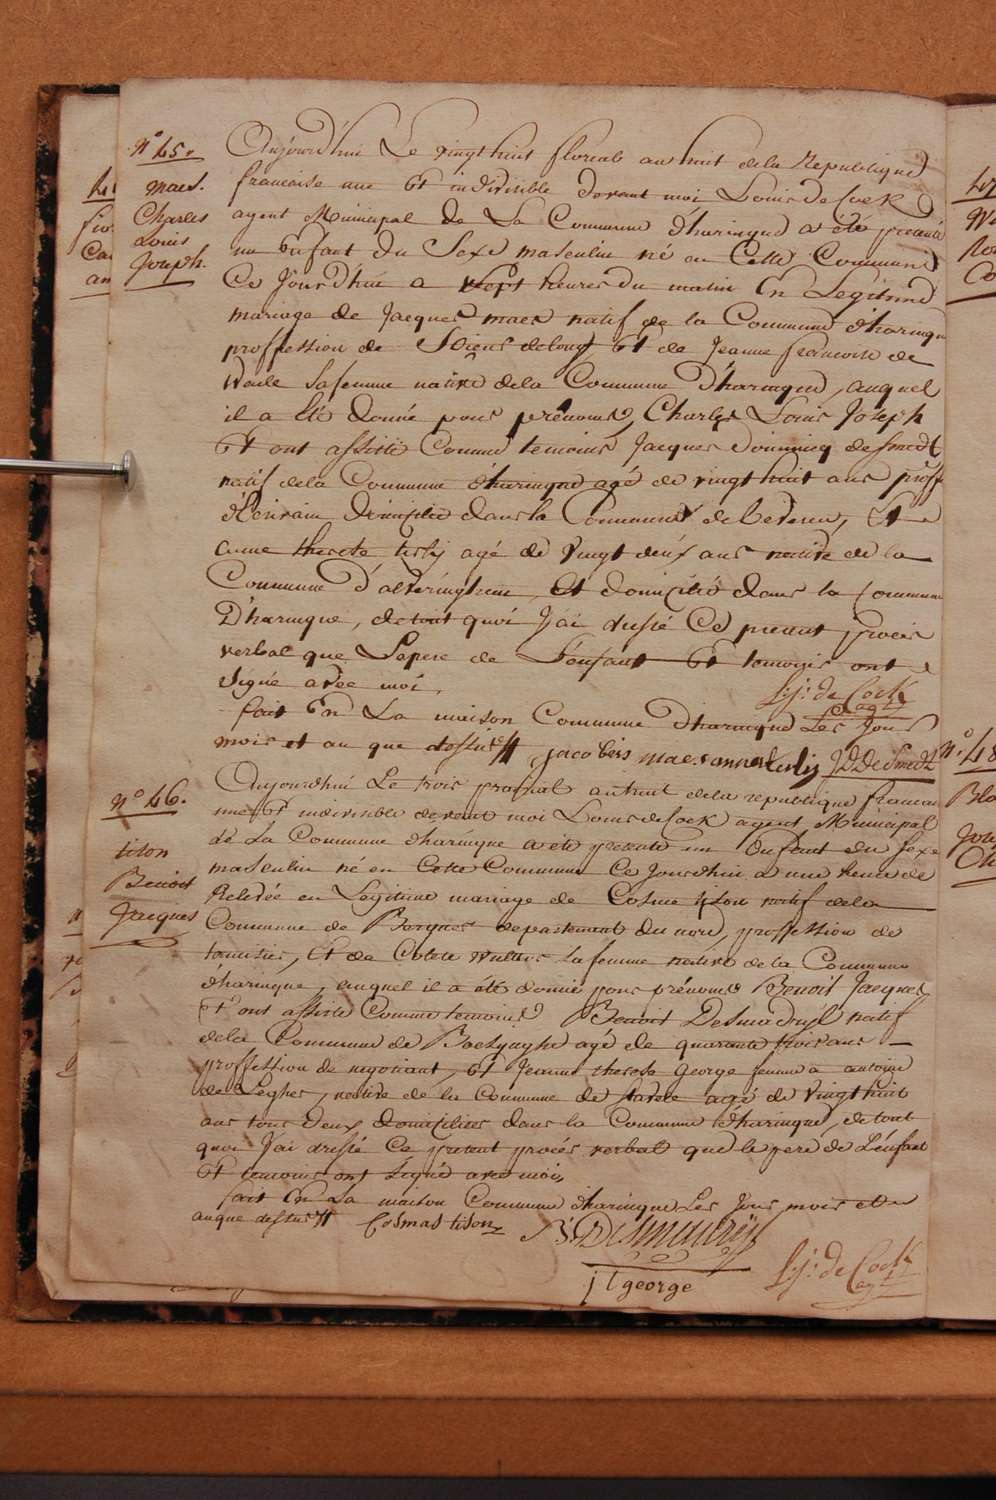 N.° 45.
maes.
Charles
Louis
Joseph.
Aujourd'hui Le vingt huit floreal an huit de la Republique
francaise une Et indivisible devant moi Louis de Cock
agent Municipal de La Commune d'haringue a été presenté
un Enfant du Sexe masculin né en Cette Commune
Ce Jourdhui a sept heures du matin En Legitime
mariage de Jacques maes natif de la Commune d'haringue
proffession de de long, Et de Jeanne francoise de
Waele sa femme native de la Commune D'haringue, auquel
il a Eté donné pour prénoms, Charles Louis Joseph
Et ont assisté Comme temoins Jacques Dominiq desmedt
natif de la Commune d'haringue agé de vingt huit ans proff
d'Ecrivain Domicilié dans la Commune de beveren, Et
anne therese agé de Vingt deux ans native de la
Commune d'alveringhem, Et domicilié dans la Commune
D'haringue, de tout quoi J'ai dressé Ce present procés
verbal que Le pere de L'enfant Et temoins ont
Signé avec moi,
L.j: de Cock
ag.t
fait En La maison Commune d'haringue Les Jour
mois et an que dessus jacobus maes anne J.D. De Smedt
N.° 46.
tison
Benoit
Jacques
Aujourdhui Le trois prairial an huit de la republique francais
une Et indivisible devant moi Louis de Cock agent Municipal
de La Commune d'haringue a été presenté un Enfant du Sexe
masculin né en Cette Commune Ce Jourdhui a une heure de
Relevée en Legitime mariage de Cosme tison natif de la
Commune de Bergues departement du nord, proffession de
Et de sa femme native de la Commune
d'haringue, auquel il a été donné pour prénoms Benoit Jacques
Et ont assisté Comme temoins Benoit Desmadryl natif
de la Commune de Boesinghe agé de quarante trois ans
proffession de negotiant, Et Jeanne therese George femme a antoine
de Legher, native de la Commune de Stavele agé de Vingt huit
ans tous Deux domiciliés dans la Commune d'haringue, de tout
quoi J'ai dressé Ce present procés verbal que le pere de L'enfant
Et temoins ont Signé avec moi,
fait En La maison Commune d'haringue Les Jour mois et
an que dessus Cosmas tison B: Desmadryl
j t george
L.j: de Cock
ag.t
N.° 48